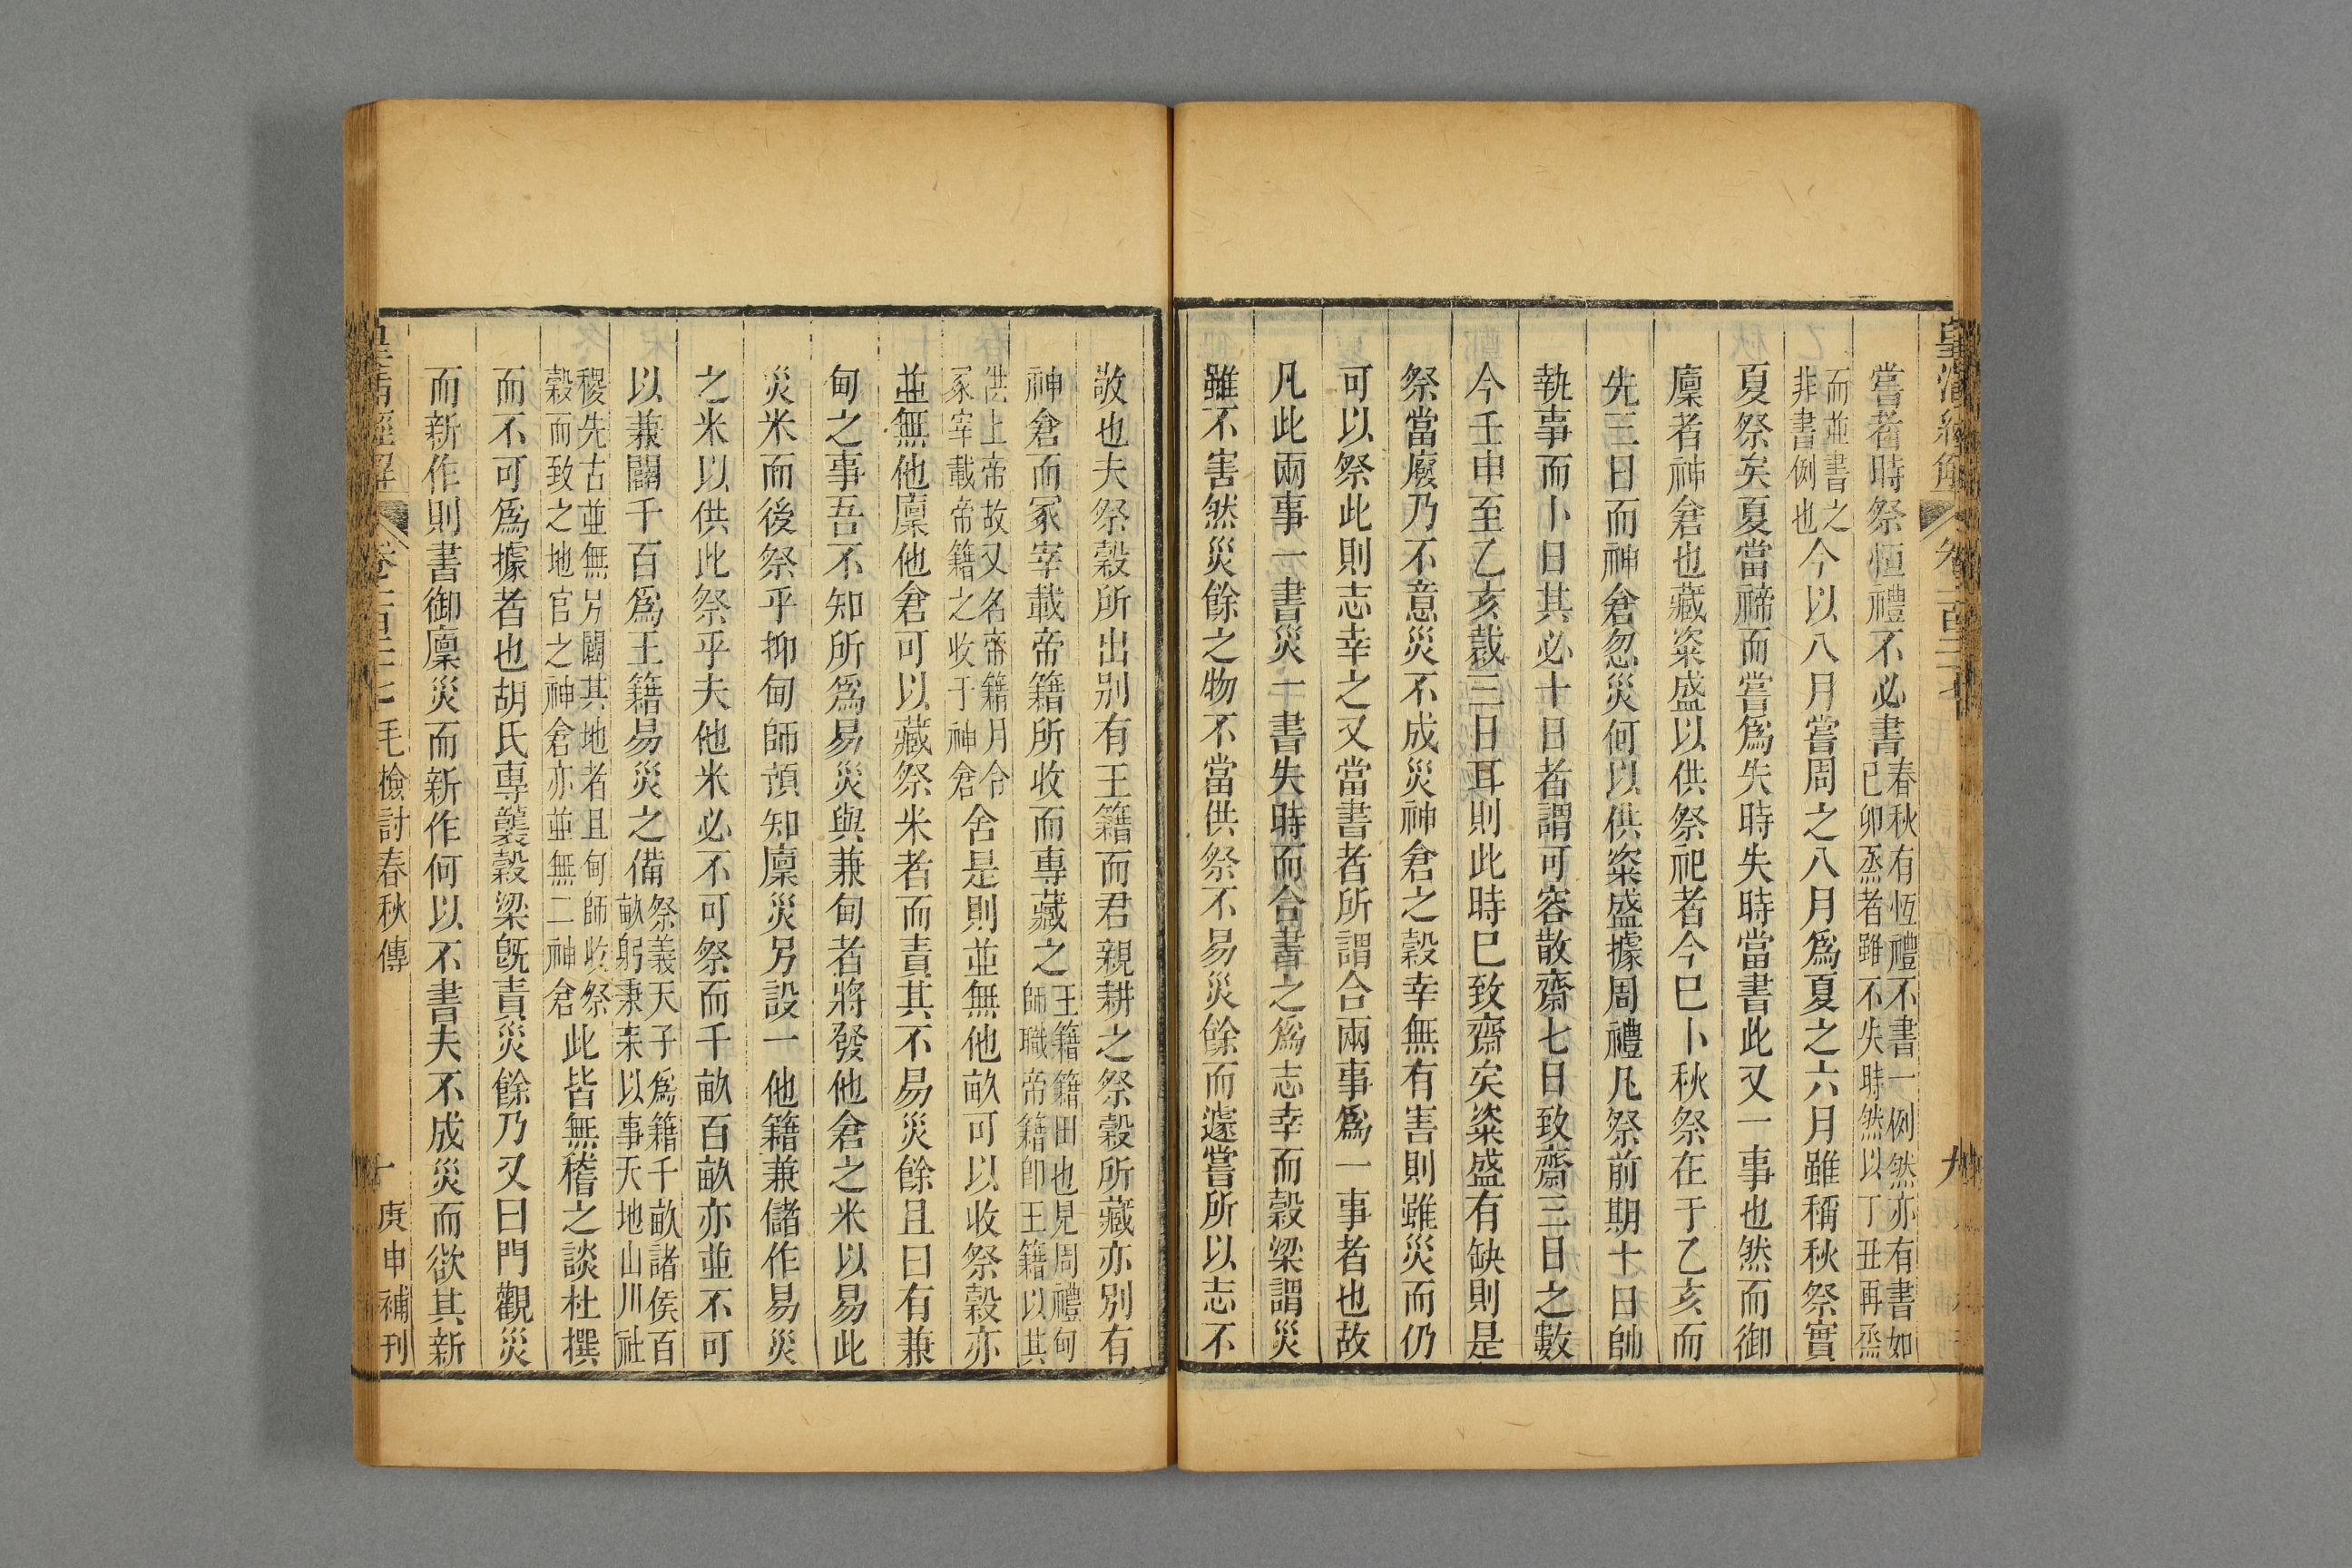 嘗者時祭恒禮不必書春秋有恆禮不書一例然亦有書如己卯烝者雖不失時然以丁丑再烝
而並書之非書例也今以八月嘗周之八月爲夏之六月雖稱秋祭實
夏祭矣夏當禘而嘗爲失時失時當書此又一事也然而御
廩者神倉也藏粢盛以供祭祀者今巳卜秋祭在于乙亥而
先三日而神倉忽災何以供粢盛據周禮凡祭前期十日帥
執事而卜日其必十日者謂可容散齋七日致齋三日之數
今壬申至乙亥裁三日耳則此時巳致齋矣粢盛有缺則是
祭當廢乃不意災不成災神倉之穀幸無有害則雖災而仍
可以祭此則志幸之又當書者所謂合兩事爲一事者也故
凡此兩事一書災一書失時而合書之爲志幸而穀梁謂災
雖不害然災餘之物不當供祭不易災餘而遽嘗所以志不
敬也夫祭穀所出別有王籍而君親耕之祭穀所藏亦別有
神倉而冢宰載帝籍所收而專藏之王籍籍田也見周禮甸師職帝籍卽王籍以其
供上帝故又名帝籍月令冢宰載帝籍之收于神倉舍是則並無他畝可以收祭穀亦
並無他廩他倉可以藏祭米者而責其不易災餘且曰有兼
甸之事吾不知所爲易災與兼甸者將發他倉之米以易此
災米而後祭乎抑甸師預知廩災另設一他籍兼儲作易災
之米以供此祭乎夫他米必不可祭而千畝百畝亦並不可
以兼闢千百爲王籍易災之備祭義天子爲籍千畝諸侯百畝躬秉耒以事天地山川社
稷先古並無另闢其地者且甸師收祭穀而致之地官之神倉亦並無二神倉此皆無稽之談杜撰
而不可爲據者也胡氏專襲穀梁旣責災餘乃又曰門觀災
而新作則書御廩災而新作何以不書夫不成災而欲其新
皇淸經解 卷一百二十七 毛檢討春秋傳 十 庚申補刊